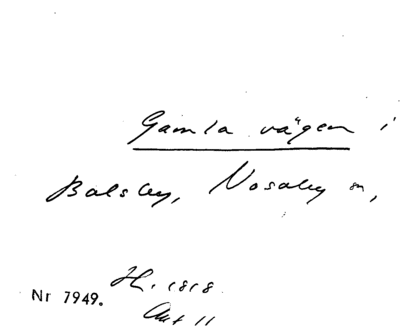 Gamla vägen i
Balsby, Nosaby sn,
Nr 7949. Hi. 1818
Akt 11